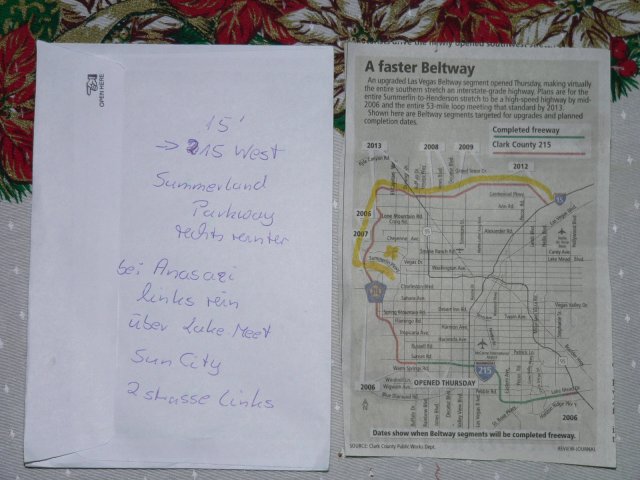 OPEN HERE
15'
→ 215 West
Summerland
Parkway
rechts runter
bei Anasazi
links rein
über Lake Meet
Sun City
2 strasse links
A faster Beltway
An upgraded Las Vegas Beltway segment opened Thursday, making virtually
the entire southern stretch an interstate-grade highway. Plans are for the
entire Summerlin-to-Henderson stretch to be a high-speed highway by mid-
2006 and the entire 53-mile loop meeting that standard by 2013.
Shown here are Beltway segments targeted for upgrades and planned
completion dates.
Completed freeway
Clark County 215
2013
2008
2009
2012
Kyle Canyon Rd.
Grand Teton Dr.
Centennial Pkwy.
Ann Rd.
2006
Lone Mountain Rd.
Craig Rd.
Alexander Rd.
2007
Cheyenne Ave.
Summerlin Pkwy.
Vegas Dr.
Washington Ave.
Carey Ave.
Lake Mead Blvd.
Charleston Blvd.
Sahara Ave.
Spring Mountain Rd.
Desert Inn Rd.
Vegas Valley Dr.
Flamingo Rd.
Twain Ave.
Harmon Ave.
Tropicana Ave.
Hacienda Ave.
Russell Rd.
Patrick Ln.
Sunset Rd.
Warm Springs Rd.
215
OPENED THURSDAY
Pebble Rd.
Windmill Ln.
Wigwam Ave.
Blue Diamond Rd.
2006
2006
Dates show when Beltway segments will be completed freeway.
SOURCE: Clark County Public Works Dept.
REVIEW-JOURNAL